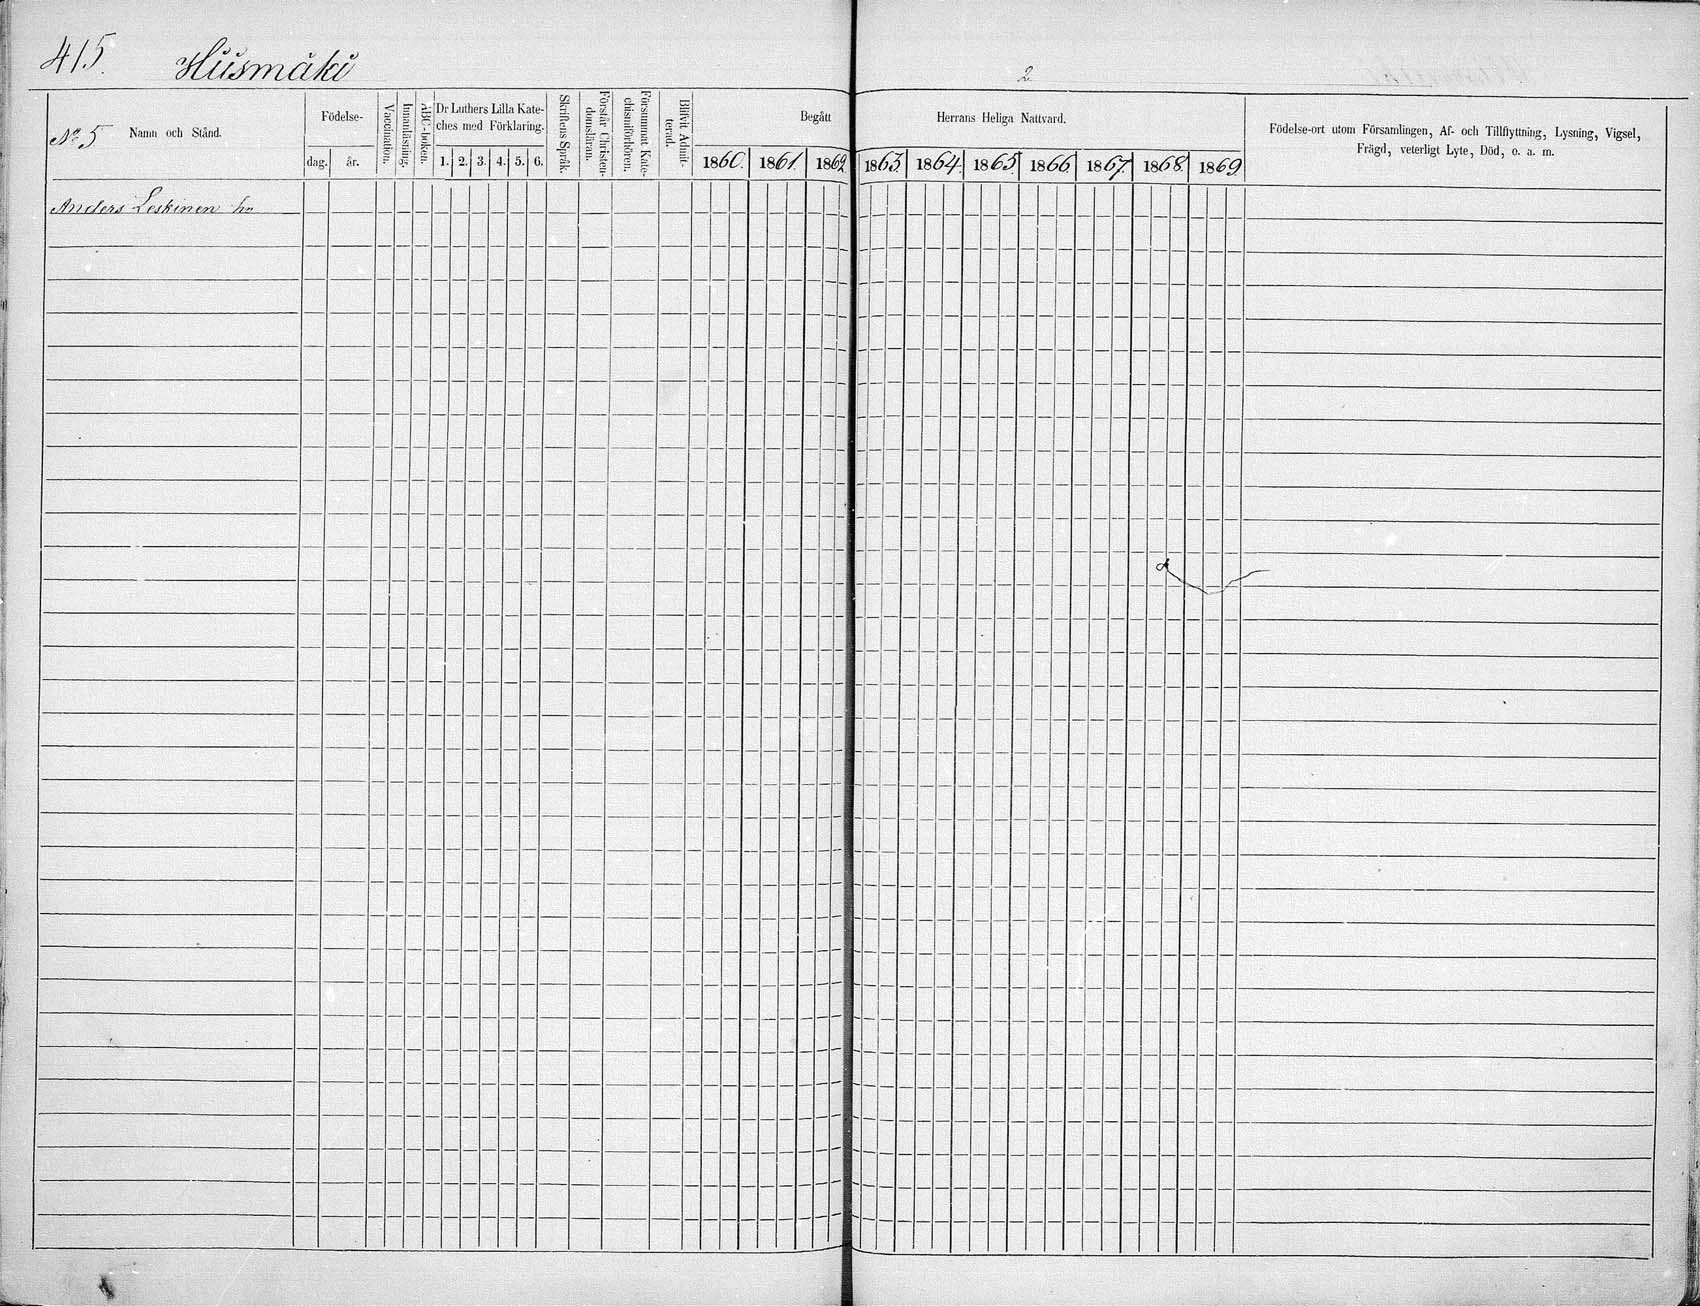 415. Husmäki
2.
No 5 Namn och Stånd.
Födelse-
dag. år.
Vaccination.
Innanläsning.
ABC-boken.
Dr Luthers Lilla Kate-
ches med Förklaring.
1. 2. 3. 4. 5. 6.
Skriftens Språk.
Förstår Christen-
domsläran.
Försummat Kate-
chismiförhören.
Blifvit Admit-
terad.
Begått Herrans Heliga Nattvard.
1860. 1861. 1862. 1863. 1864. 1865. 1866. 1867. 1868. 1869.
Födelse-ort utom Församlingen, Af- och Tillflyttning, Lysning, Vigsel,
Frägd, veterligt Lyte, Död, o. a. m.
Anders Leskinen